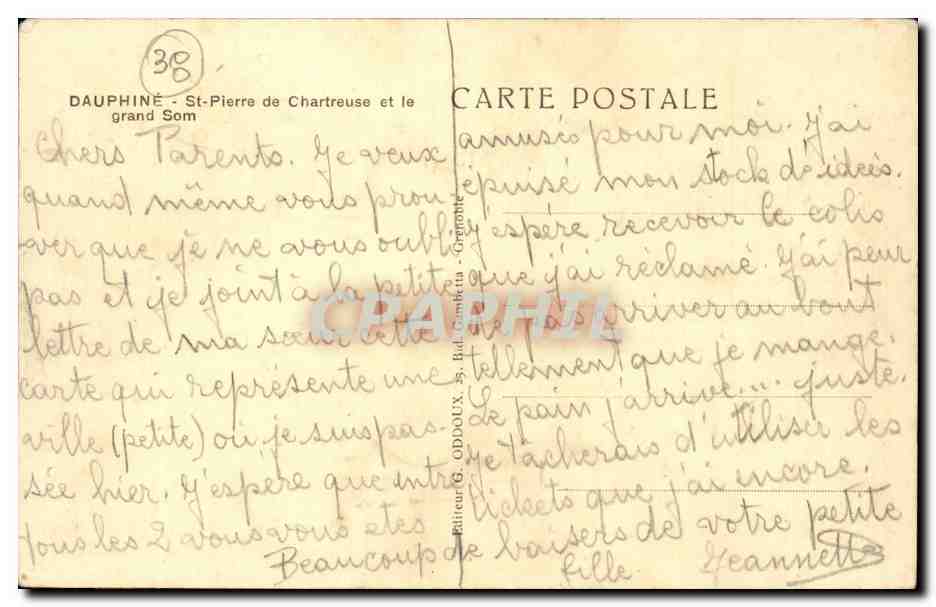 38
DAUPHINÉ - St-Pierre de Chartreuse et le
grand Som
Chers Parents. Je veux
quand même vous prou-
ver que je ne vous oubli
pas et je joint à la petite
lettre de ma sœur cette
carte qui représente une
ville (petite) où je suis pas-
sée hier. J'espère que entre
tous les 2 vous vous êtes
Editeur G. ODDOUX, 25, Bld. Gambetta - Grenoble
CARTE POSTALE
amusés pour moi. J'ai
épuisé mon stock d'idées.
J'espère recevoir le colis
que j'ai réclamé. J'ai peur
de pas arriver au bout
tellement que je mange.
Le pain j'arrive... juste.
Je tâcherais d'utiliser les
tickets que j'ai encore.
Beaucoup de baisers de votre petite
fille Jeannette
CPAPHIL